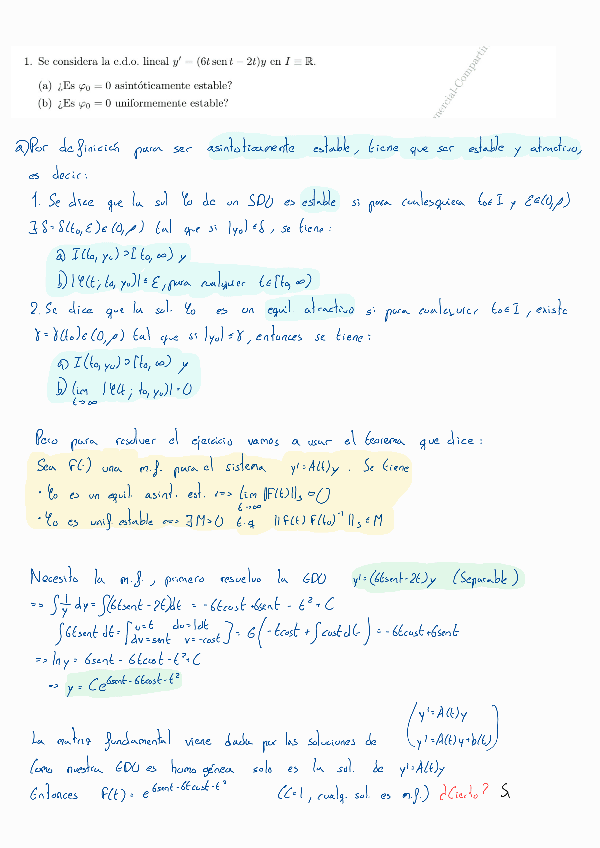 1. Se considera la e.d.o. lineal y' = (6t sen t − 2t)y en I ≡ ℝ.
(a) ¿Es φ₀ = 0 asintóticamente estable?
(b) ¿Es φ₀ = 0 uniformemente estable?
a) Por definición para ser asintóticamente estable, tiene que ser estable y atractivo,
es decir:
1. Se dice que la sol φ₀ de un SDO es estable si para cualesquiera t₀∈I y ε∈(0,ρ)
∃ δ=δ(t₀,ε)∈(0,ρ) tal que si |y₀|≤δ, se tiene:
a) I(t₀,y₀)⊃[t₀,∞) y
b) |φ(t;t₀,y₀)|≤ε, para cualquier t∈[t₀,∞)
2. Se dice que la sol. φ₀ es un equil atractivo si para cualquier t₀∈I, existe
γ=γ(t₀)∈(0,ρ) tal que si |y₀|≤γ, entonces se tiene:
a) I(t₀,y₀)⊃[t₀,∞) y
b) lim |φ(t;t₀,y₀)|=0
t→∞
Pero para resolver el ejercicio vamos a usar el teorema que dice:
Sea F(·) una m.f. para el sistema y'=A(t)y. Se tiene
· φ₀ es un equil. asint. est. <=> lim ||F(t)||ₛ=0
t→∞
· φ₀ es unif estable <=> ∃M>0 t.q ||F(t)F(t₀)⁻¹||ₛ≤M
Necesito la m.f., primero resuelvo la EDO y'=(6tsent-2t)y (Separable)
=> ∫1/y dy=∫(6tsent-2t)dt = -6tcost+6sent - t²+C
∫6tsent dt=[u=t du=1dt
dv=sent v=-cost]=6(-tcost+∫cost dt)=-6tcost+6sent
=> ln y = 6sent-6tcost-t²+C
=> y = Ce^(6sent-6tcost-t²)
(y'=A(t)y
La matriz fundamental viene dada por las soluciones de y'=A(t)y+b(t))
Como nuestra EDO es homogénea solo es la sol. de y'=A(t)y
Entonces F(t)=e^(6sent-6tcost-t²) (C=1, cualq. sol. es m.f.) ¿Cierto? Si